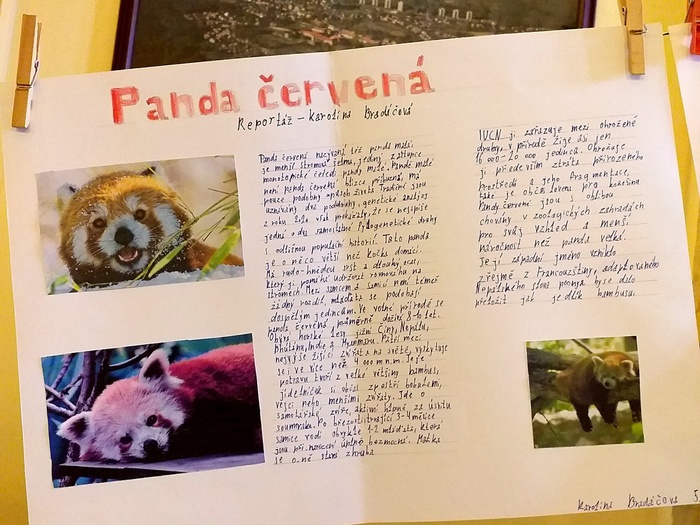 Panda červená
Reportáž – Karolína Bradáčová
Panda červená nazývaná též panda malá,
je menší stromová šelma, jediný zástupce
monotypické čeledi pandy malé. Pandě malé
není panda červená blízce příbuzná, má
pouze podobný způsob života. Tradičně jsou
uznávány dva poddruhy, genetické analýzy
z roku 2020 však prokázaly, že se nejspíše
jedná o dva samostatné fylogenetické druhy
s odlišnou populační historií. Tato panda
je o něco větší než kočka domácí.
Má rudo-hnědou srst a dlouhý ocas,
který jí pomáhá udržovat rovnováhu na
stromech. Mezi samcem a samicí není téměř
žádný rozdíl, mláďata se podobají
dospělým jedincům. Ve volné přírodě se
panda červená průměrně dožívá 8-10 let.
Obývá horské lesy jižní Číny, Nepálu,
Bhútánu, Indie a Myanmaru. Patří mezi
nejvýše žijící zvířata na světě, vyskytuje
se i ve více než 4 000 m n.m. Její
potravu tvoří z velké většiny bambus,
jídelníček si občas zpestří bobulemi,
vejci nebo menšími zvířaty. Jde o
samotářské zvíře, aktivní hlavně za úsvitu
soumraku. Po březosti trvající 3-4 měsíce
samice rodí obvykle 1-2 mláďata, která
jsou při narození úplně bezmocná. Matka
se o ně stará zhruba
IUCN ji zařazuje mezi ohrožené
druhy, v přírodě žije asi jen
16 000-20 000 jedinců. Ohrožuje
ji především ztráta přirozeného
prostředí a jeho fragmentace,
také je občas lovena pro kožešinu
Pandy červené jsou s oblibou
chovány v zoologických zahradách
pro svůj vzhled a menší
náročnost než panda velká.
Její západní jméno vzniklo
zřejmě z Francouzštiny, adaptovaného
Nepálského slova poonya byse dalo
přeložit jak jedlík bambusu.
Karolína Bradáčová 5